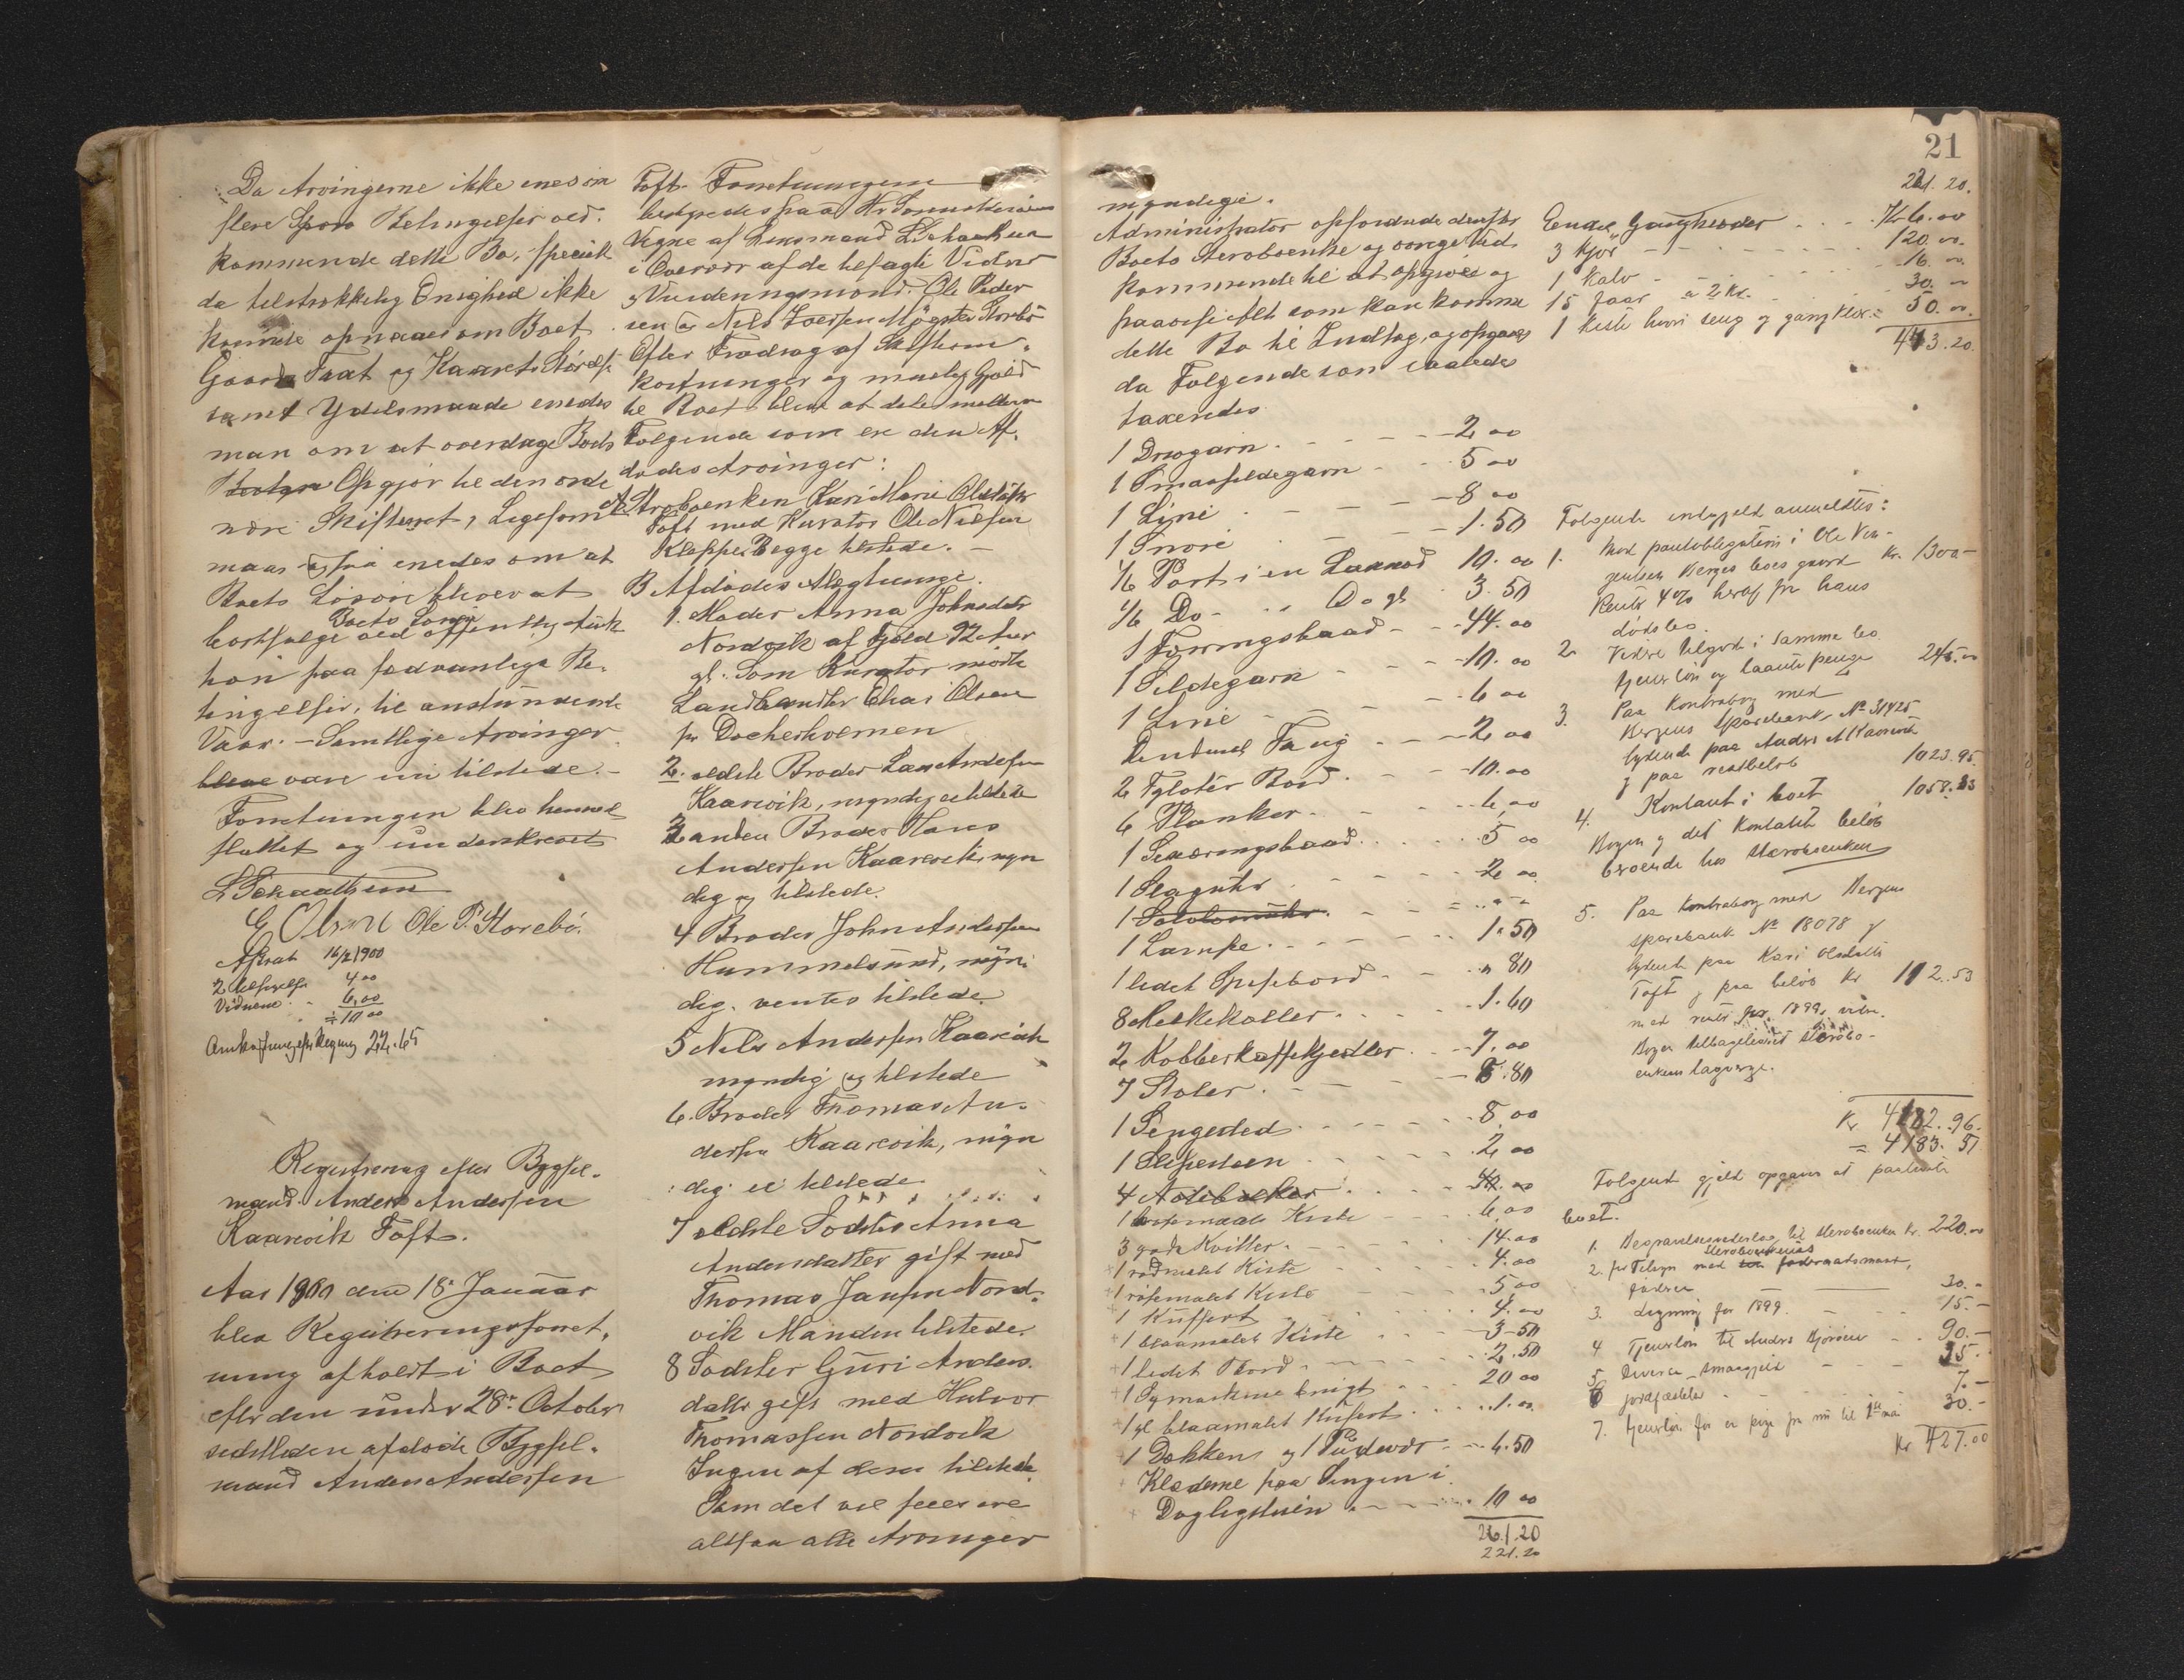 Da Arvingerne ikke enes om
flere Betingelser ved-
kommende dette Bo, specielt
da tilstrækkelig Enighed ikke
kunde opnaaes om Boet
Gaard Taxt og Kaarets Størelse
samt Ydelsmaade enedes
man om at overdage Boets
Opgjør til den orde
nære Skifteret, Ligesom
man og saa enedes om at
Boets Løsøre blever at
Boets Løsøre
bortsælge ved offentlig Auk
tion paa sedvanlige Be-
tingelser, til anstundende
Vaar. - Samtlige Arvinger
blev vare nu tilstede. -
Forretningen blev hermed
sluttet og underskrevet
L Schaathun
E Olsen Ole P. Storebø.
Afkrat 16/2 1900
2 tilsigelse 4.00
Vidnene 6.00
÷ 10 00
Omkostning efter Regning 22.65
Registrering efter Bygsel-
mand Anders Andersen
Kaarevik Toft.
Aar 1900 den 18de Januar
blev Registreringsforret-
ning afholdt i Boet
efter den under 28de October
sidstleden afdøde Bygsel-
mand Anders Andersen
Toft. Forretningen
bestyredes paa Hr Sorenskriverens
Vegne af Lensmand L Schaathun
i Overvær af de tilsagte Vidner
og Vurderingsmænd Ole Peder
sen og Nils Iversen Møgster Storbø
Efter Fradrag af Skifteom-
kostninger og mulig Gjæld
til Boet bliver at dele mellem
Følgende som ere den Af-
dødes Arvinger:
A Sterboenken Kari Marie Olsdatter
Toft med Kurator Ole Nilsen
Kleppe. Begge tilstede. -
B Afdødes Slegtninge.
1. Moder Anna Johnsdatter
Nordvik af Fjeld 92 Aar
gl. Som Kurator mødte
Landhandler Elias Olsen
fr Dochesholmen
2. ældste Broder Lars Andersen
Kaarevik, myndig ei tilstede
3 anden Broder Hans
Andersen Kaarevik, myn
dig og tilstede.
4 Broder John Andersen
Hummelsund, myn-
dig. ventes tilstede.
5 Nils Andersen Kaarevik
myndig og tilstede
6. Broder Thomas An-
dersen Kaarevik, myn
dig ei tilstede
7 ældste Søster Anna
Andersdatter gift med
Thomas Jansen Nord-
vik Manden tilstede.
8 Søster Guri Anders
datter gift med Halvor
Thomassen Nordvik
Ingen af disse tilstede
Som det vil sees ere
altsaa alle Arvinger
21
myndige.
Administrator opfordrede derefter
Boets Sterboenke og øvrige Ved
kommende til at opgive og
paavise alt som kan komme
dette Bo til Indtægt, og opgaves
da Følgende som saaledes
taxeredes
1 Drivgarn 2 00
1 Smaasildegarn 5 00
1 Line 8 00
1 Snøre 1.50
1/6 Part i en Laxenod 10.00
1/6 Do 3.50
1 Føringsbaad 44.00
1 Sildegarn 10.00
1 Line 6 00
Taug 2 00
2 Bord 10.00
6 Planker 6,00
1 Sexæringsbaad 5 00
1 Slaguhr 2 00
1 Lampe 1.50
1 lidet Spisebord " 80
8 Melkekoller 1.60
2 Kobberkaffekjedler 7.00
7 Stoler 5.80
1 Sengested 8,00
1 Slipesteen 2,00
1 rosemalede Kiste 6.00
3 gode Kvitler 14.00
1 rødmalet Kiste 4.00
1 rosemalet Kiste 5 00
1 Kuffert 4.00
1 blaamalet Kiste 3-50
1 lidet Bord 2.50
1 Symaskine brugt 20 00
1 gl blaamalet Kufert 1.00
1 Dækken og 1 Pudevår 6.50
Klæderne paa Sengen i
Dagligstuen 10 00
261.20
221.20
221.20.
Kr 6.00
3 kjør 120.00
1 Kalv 16 00
15 faar a 2 Kr. 30.00
1 Kiste hvori seng og gangklær 50.00
443.20
Følgende indgjæld anmeldtes:
1. Med pantobligation i Ole
Berges boes gaard Kr. 1300-
Renter 4% heraf fra hans
dødsbo.
2. Videre tilgode i samme bo
tjenerløn og laante penge 245.00
3. Paa Kontrabog med
Bergens Sparebank No 31425
lydende paa Anders A Kaarevik
og paa restbeløb 1023.95.
4. Kontant i boet 1058.
Bogen og det Kontante beløb
beroende hos Sterboenken
5. Paa Kontrabog med Bergens
Sparebank No 18078 og
lydende paa Kari Olsdatter
Toft og paa beløb Kr 112.53
med renter for 1899,
Bogen tilbageleveret Sterbo-
enkens lagverge.
Kr 4182.96.
= 4183.51
Følgende gjeld opgaves at paahvile
boet.
1. Begravelsesudlæg til Sterboenken Kr. 220.00
2. for Tilsyn med Sterboenkens
30.-
3. Ligning for 1899. 15.-
4 Tjenerløn til Anders 90.-
5. Diverse smaagjeld 35.-
6 7.-
7. tjenerløn for en pige fra nu til 1ste mai 30.-
Kr 427.00